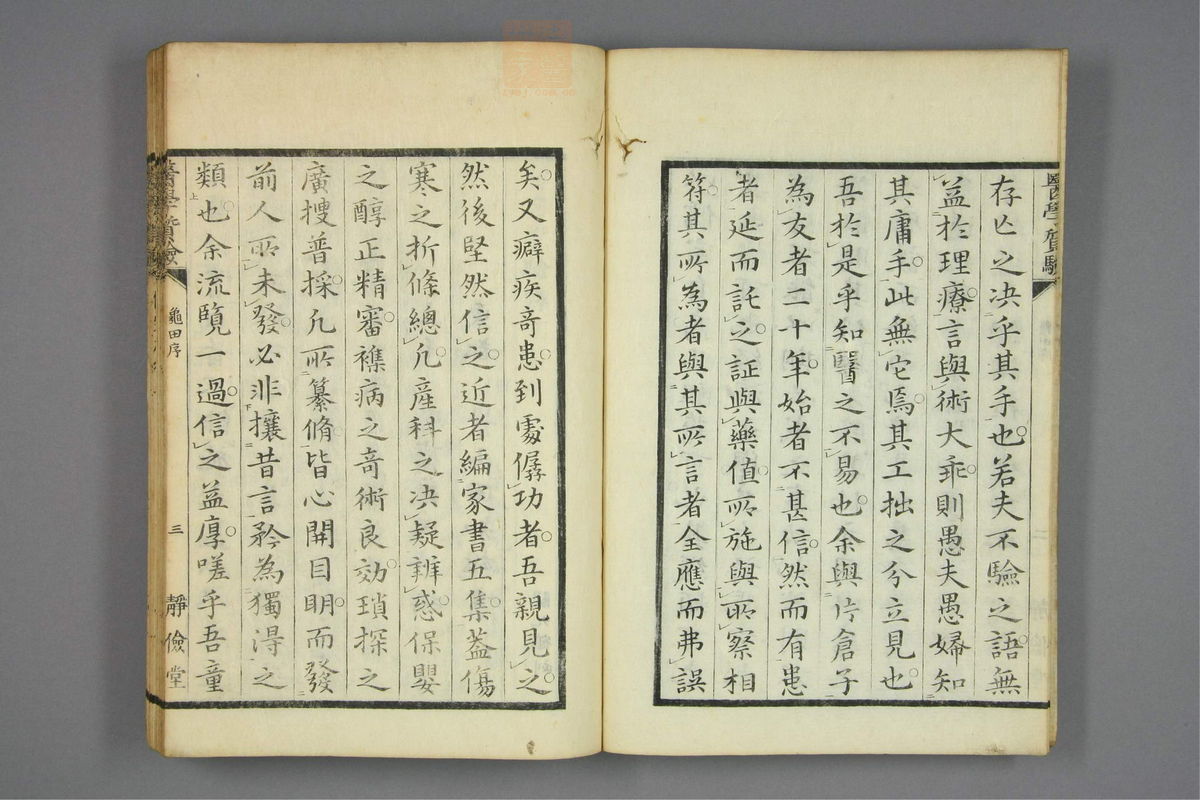 存亾之决乎其手也若夫不驗之語無
益於理療言與術大乖則愚夫愚婦知
其庸手此無它焉其工拙之分立見也
吾於是乎知醫之不易也余與片倉子
為友者二十年始者不甚信然而有患
者延而託之証與藥值所施與所察相
符其所為者與其所言者全應而弗誤
矣又癖疾奇患到處僝功者吾親見之
然後堅然信之近者編家書五集蓋傷
寒之折條總凢產科之决疑辨惑保嬰
之醇正精審襍病之奇術良効瑣探之
廣搜普採凢所纂脩皆心開目明而發
前人所未發必非攘昔言矜為獨淂之
類也余流覽一過信之益厚嗟乎吾童
醫學質驗
龜田序
三
靜儉堂